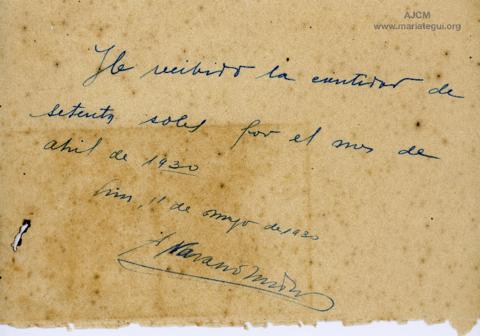 AJCM
www.mariategui.org
He recibido la cantidad de
setenta soles por el mes de
abril de 1930
Lima, 1º de mayo de 1930